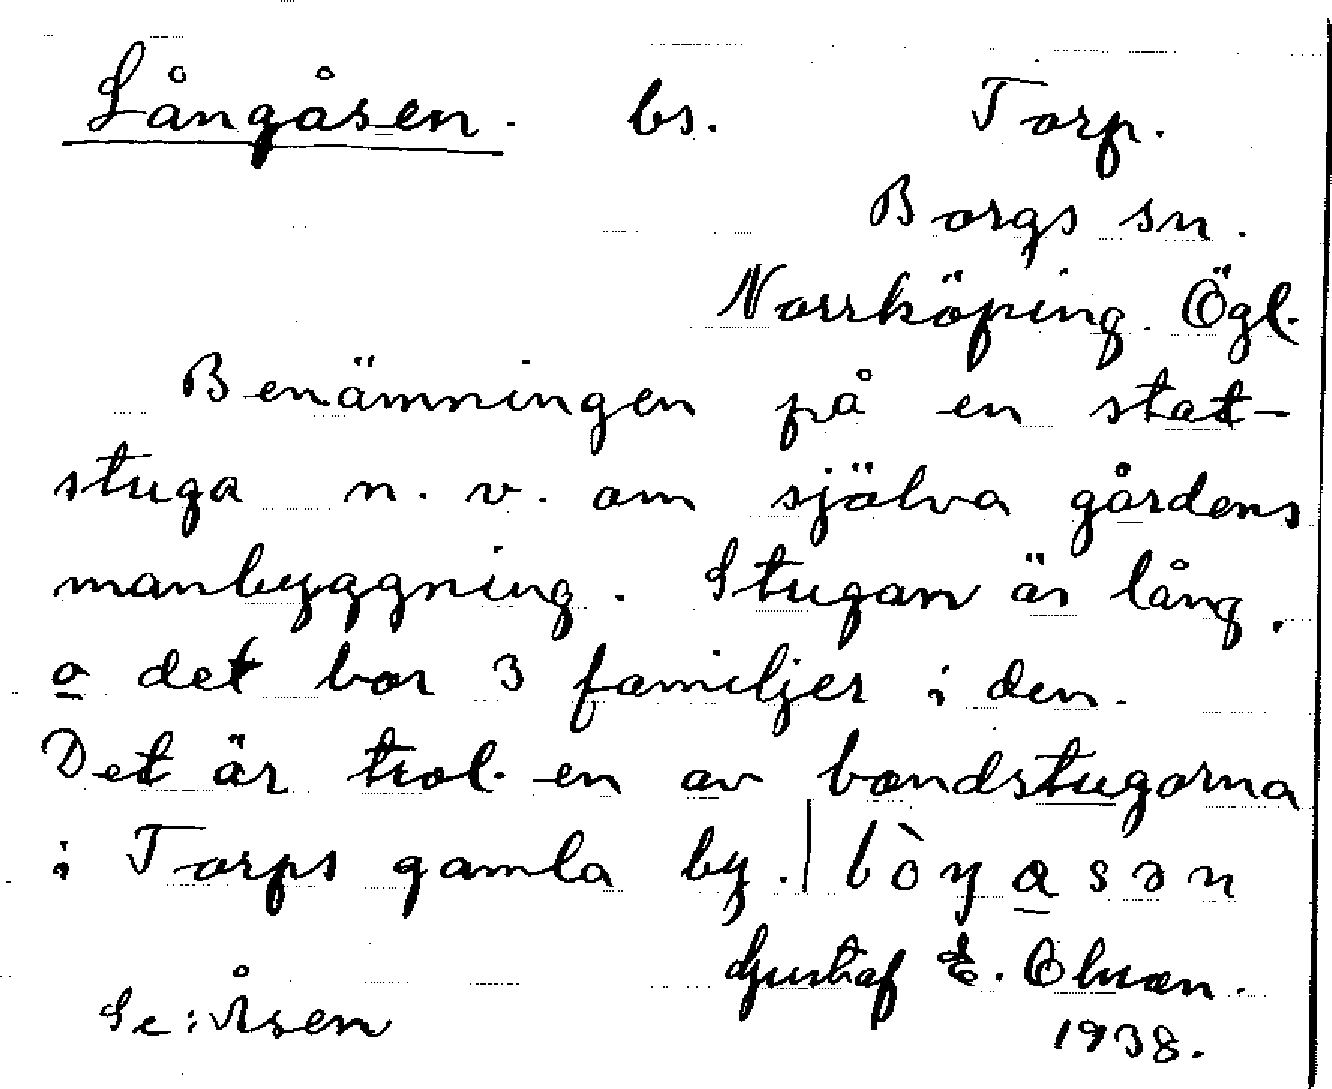 Långåsen. bs. Torp.
Borgs sn.
Norrköping. Ögl.
Benämningen på en stat-
stuga n.v. om själva gårdens
manbyggning. Stugan är lång,
o det bor 3 familjer i den.
Det är trol. en av bondstugorna
i Torps gamla by. | lòŋasən
Gustaf E. Olsson.
Se: Åsen
1938.